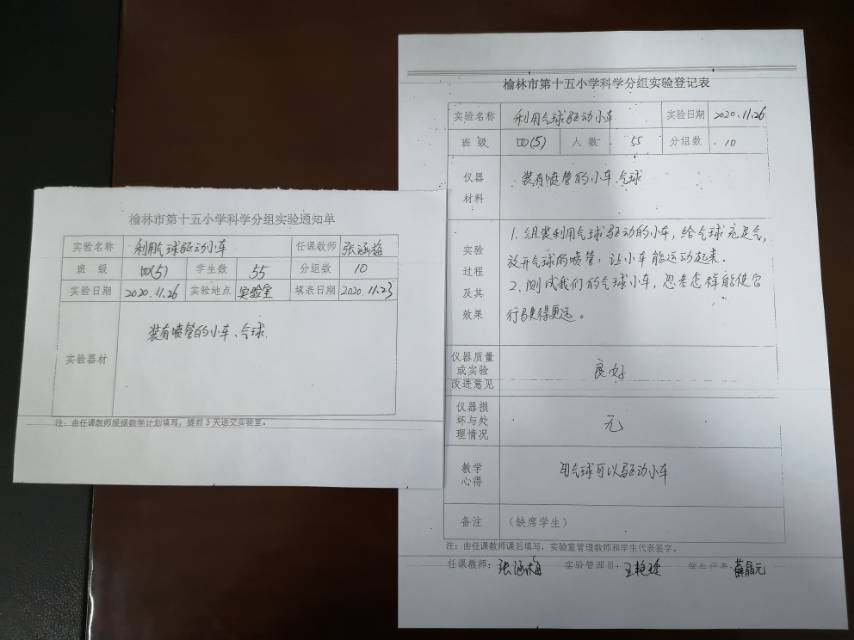 榆林市第十五小学科学分组实验通知单
实验名称 利用气球驱动小车 任课教师 张涵梅
班 级 四(5) 学生数 55 分组数 10
实验日期 2020.11.26 实验地点 实验室 填表日期 2020.11.23
实验器材 装有喷管的小车、气球.
注:由任课教师根据教学计划填写,提前3天送交实验室。
榆林市第十五小学科学分组实验登记表
实验名称 利用气球驱动小车 实验日期 2020.11.26
班 级 四(5) 人 数 55 分组数 10
仪器
材料
装有喷管的小车、气球
实验
过程
及其
效果
1. 组装利用气球驱动的小车,给气球充足气,
放开气球的喷管,让小车能运动起来.
2. 测试我们的气球小车,思考怎样能使它
行驶得更远。
仪器质量
或实验
改进意见
良好
仪器损
坏与处
理情况
无
教学
心得
用气球可以驱动小车
备注 (缺席学生)
注:由任课教师课后填写,实验室管理教师和学生代表签字。
任课教师: 张涵梅 实验管理员: 王艳玲 学生代表